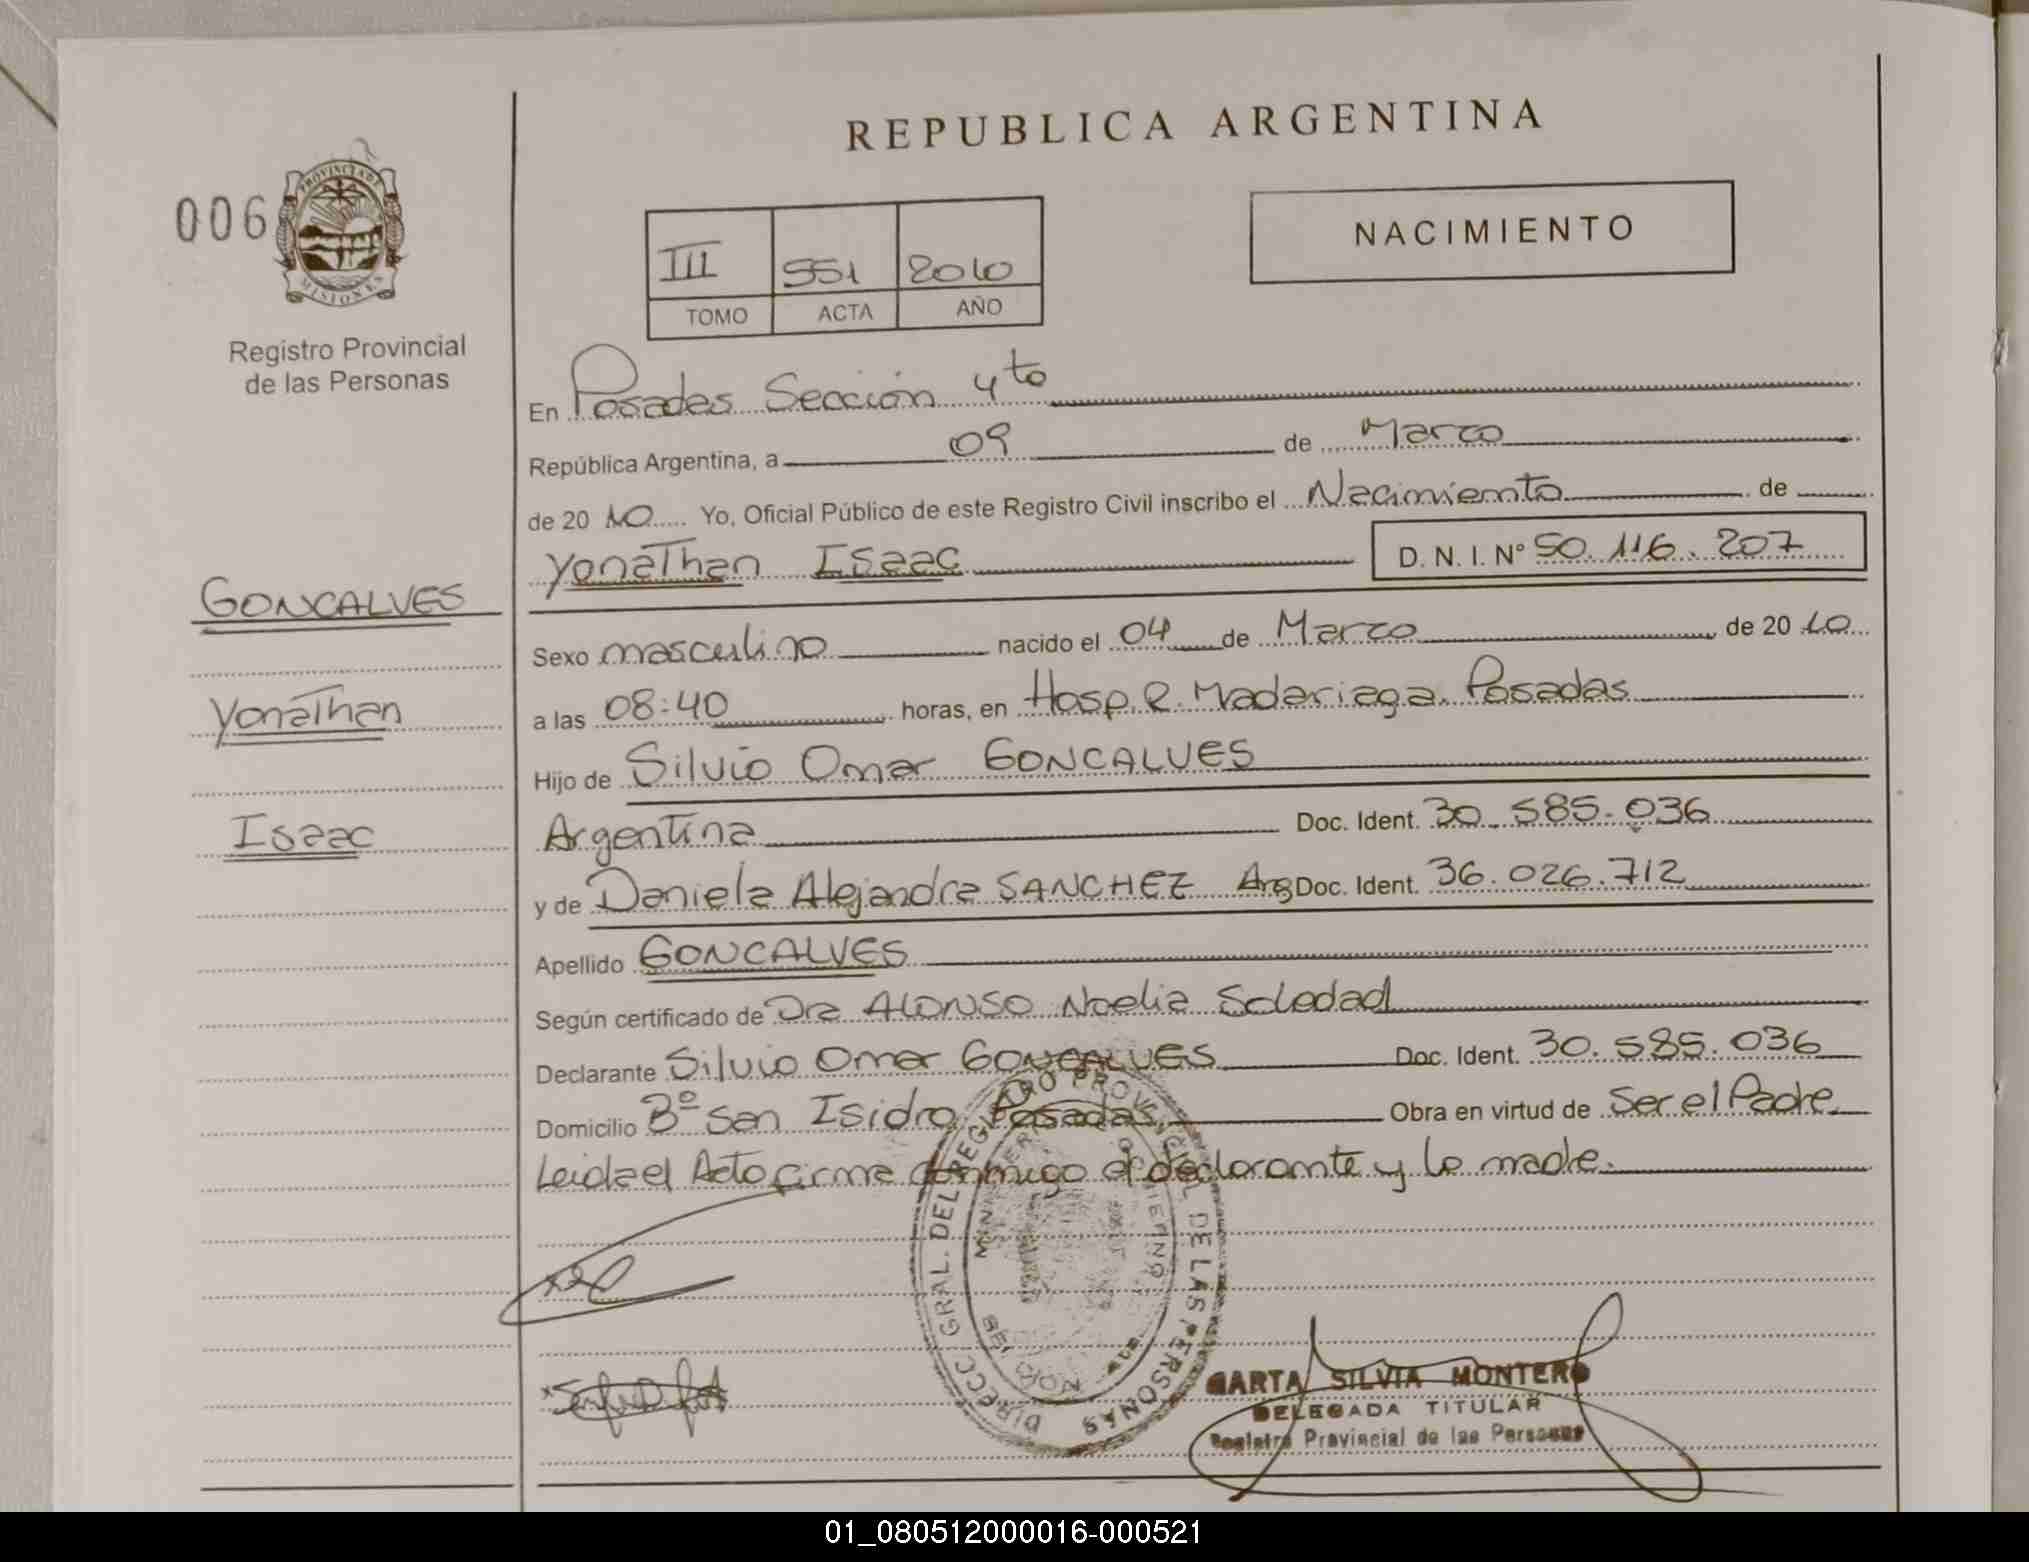 REPUBLICA ARGENTINA
006
PROVINCIA DE
MISIONES
Registro Provincial
de las Personas
III 551 2010
TOMO ACTA AÑO
NACIMIENTO
En Posadas Sección 4to
República Argentina, a 09 de Marzo
de 2010 Yo, Oficial Público de este Registro Civil inscribo el Nacimiento de
Yonathan Isaac D. N. I. N° 50.116.207
GONCALVES
Yonathan
Isaac
Sexo masculino nacido el 04 de Marzo de 2010
a las 08:40 horas, en Hosp. R. Madariaga. Posadas
Hijo de Silvio Omar GONCALVES
Argentina Doc. Ident. 30.585.036
y de Daniela Alejandra SANCHEZ Arg Doc. Ident. 36.026.712
Apellido GONCALVES
Según certificado de Dra ALONSO Noelia Soledad
Declarante Silvio Omar GONCALVES Doc. Ident. 30.585.036
Domicilio Bº San Isidro. Posadas. Obra en virtud de Ser el Padre
Leida el Acta firma conmigo el declarante y la madre.
DIRECC. GRAL. DEL REGISTRO PROVINCIAL DE LAS PERSONAS
MARTA SILVIA MONTERO
DELEGADA TITULAR
Registro Provincial de las Personas
01_080512000016-000521